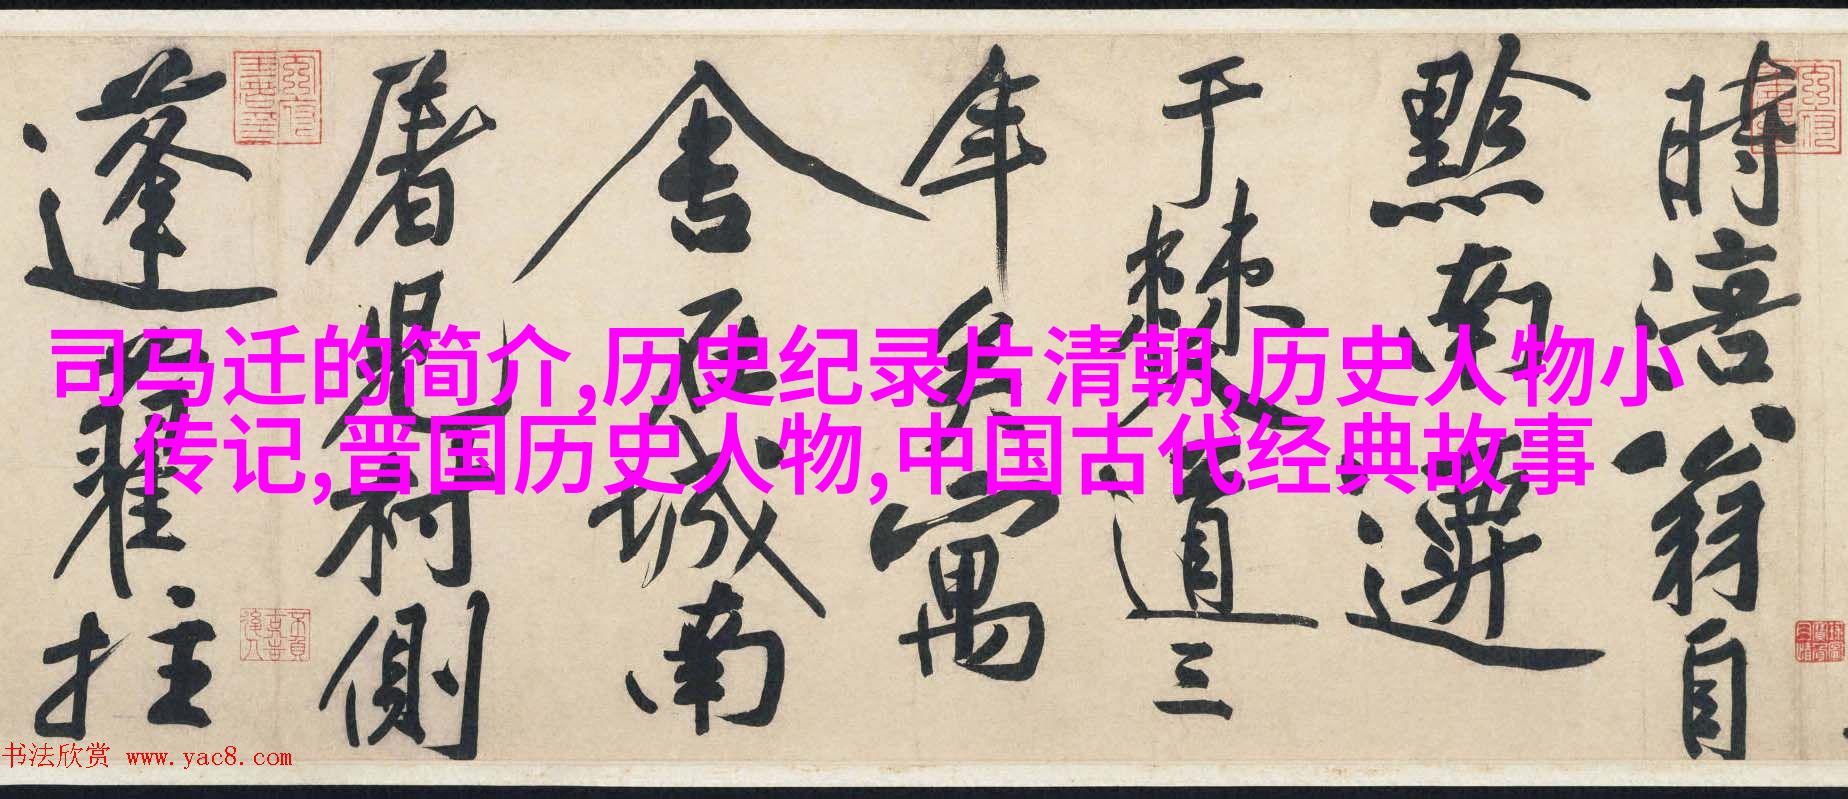 時涪翁自
黔南遷
于僰道三
年矣寓
舍在城南
屠兒村側
蓬藋拄
司马迁的简介,历史纪录片清朝,历史人物小
传记,晋国历史人物,中国古代经典故事
书法欣赏 www.yac8.com